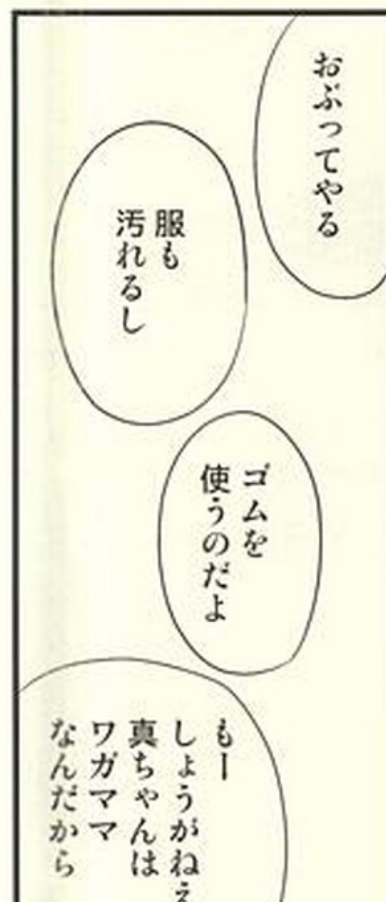 おぶってやる
服も
汚れるし
ゴムを
使うのだよ
もー
しょうがねえ
真ちゃんは
ワガママ
なんだから